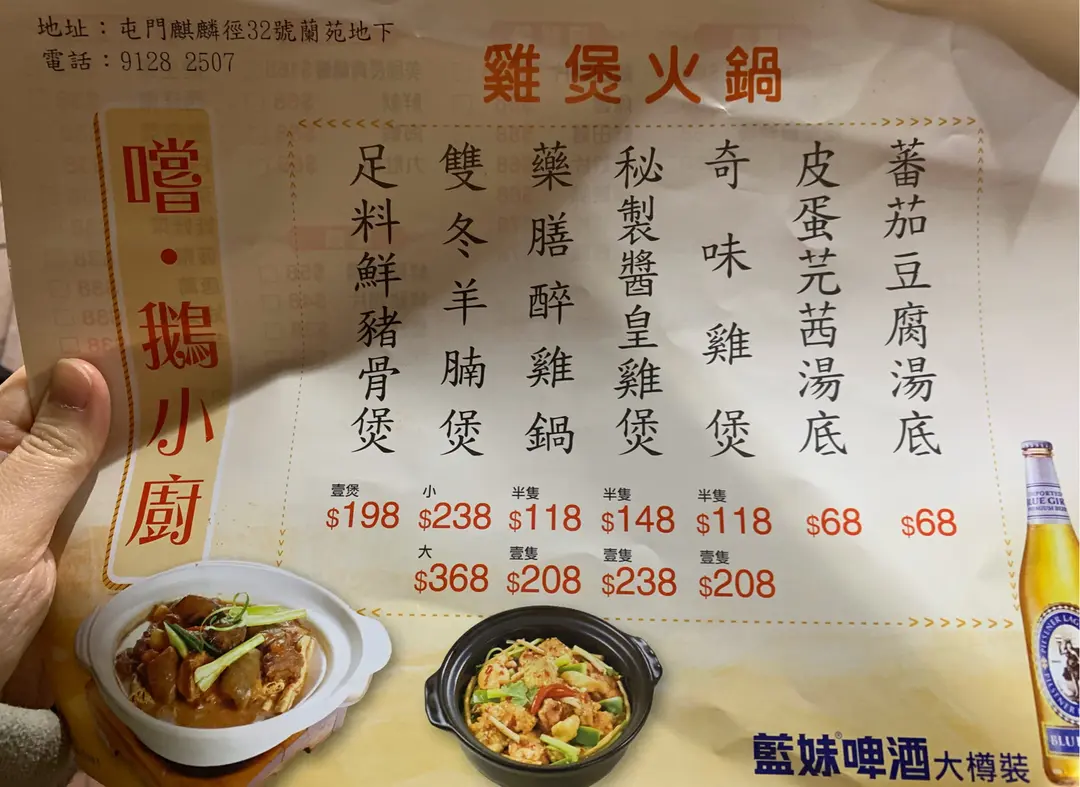 地址：屯門麒麟徑32號蘭苑地下
電話：9128 2507
雞煲火鍋
嚐・鵝小廚
蕃茄豆腐湯底
$68
皮蛋芫茜湯底
$68
奇味雞煲
半隻
$118
壹隻
$208
秘製醬皇雞煲
半隻
$148
壹隻
$238
藥膳醉雞鍋
半隻
$118
壹隻
$208
雙冬羊腩煲
小
$238
大
$368
足料鮮豬骨煲
壹煲
$198
藍妹®啤酒大樽裝
IMPORTED
BLUE GIRL
PREMIUM BEER
PILSENER LAGER
PILSENER
BLUE